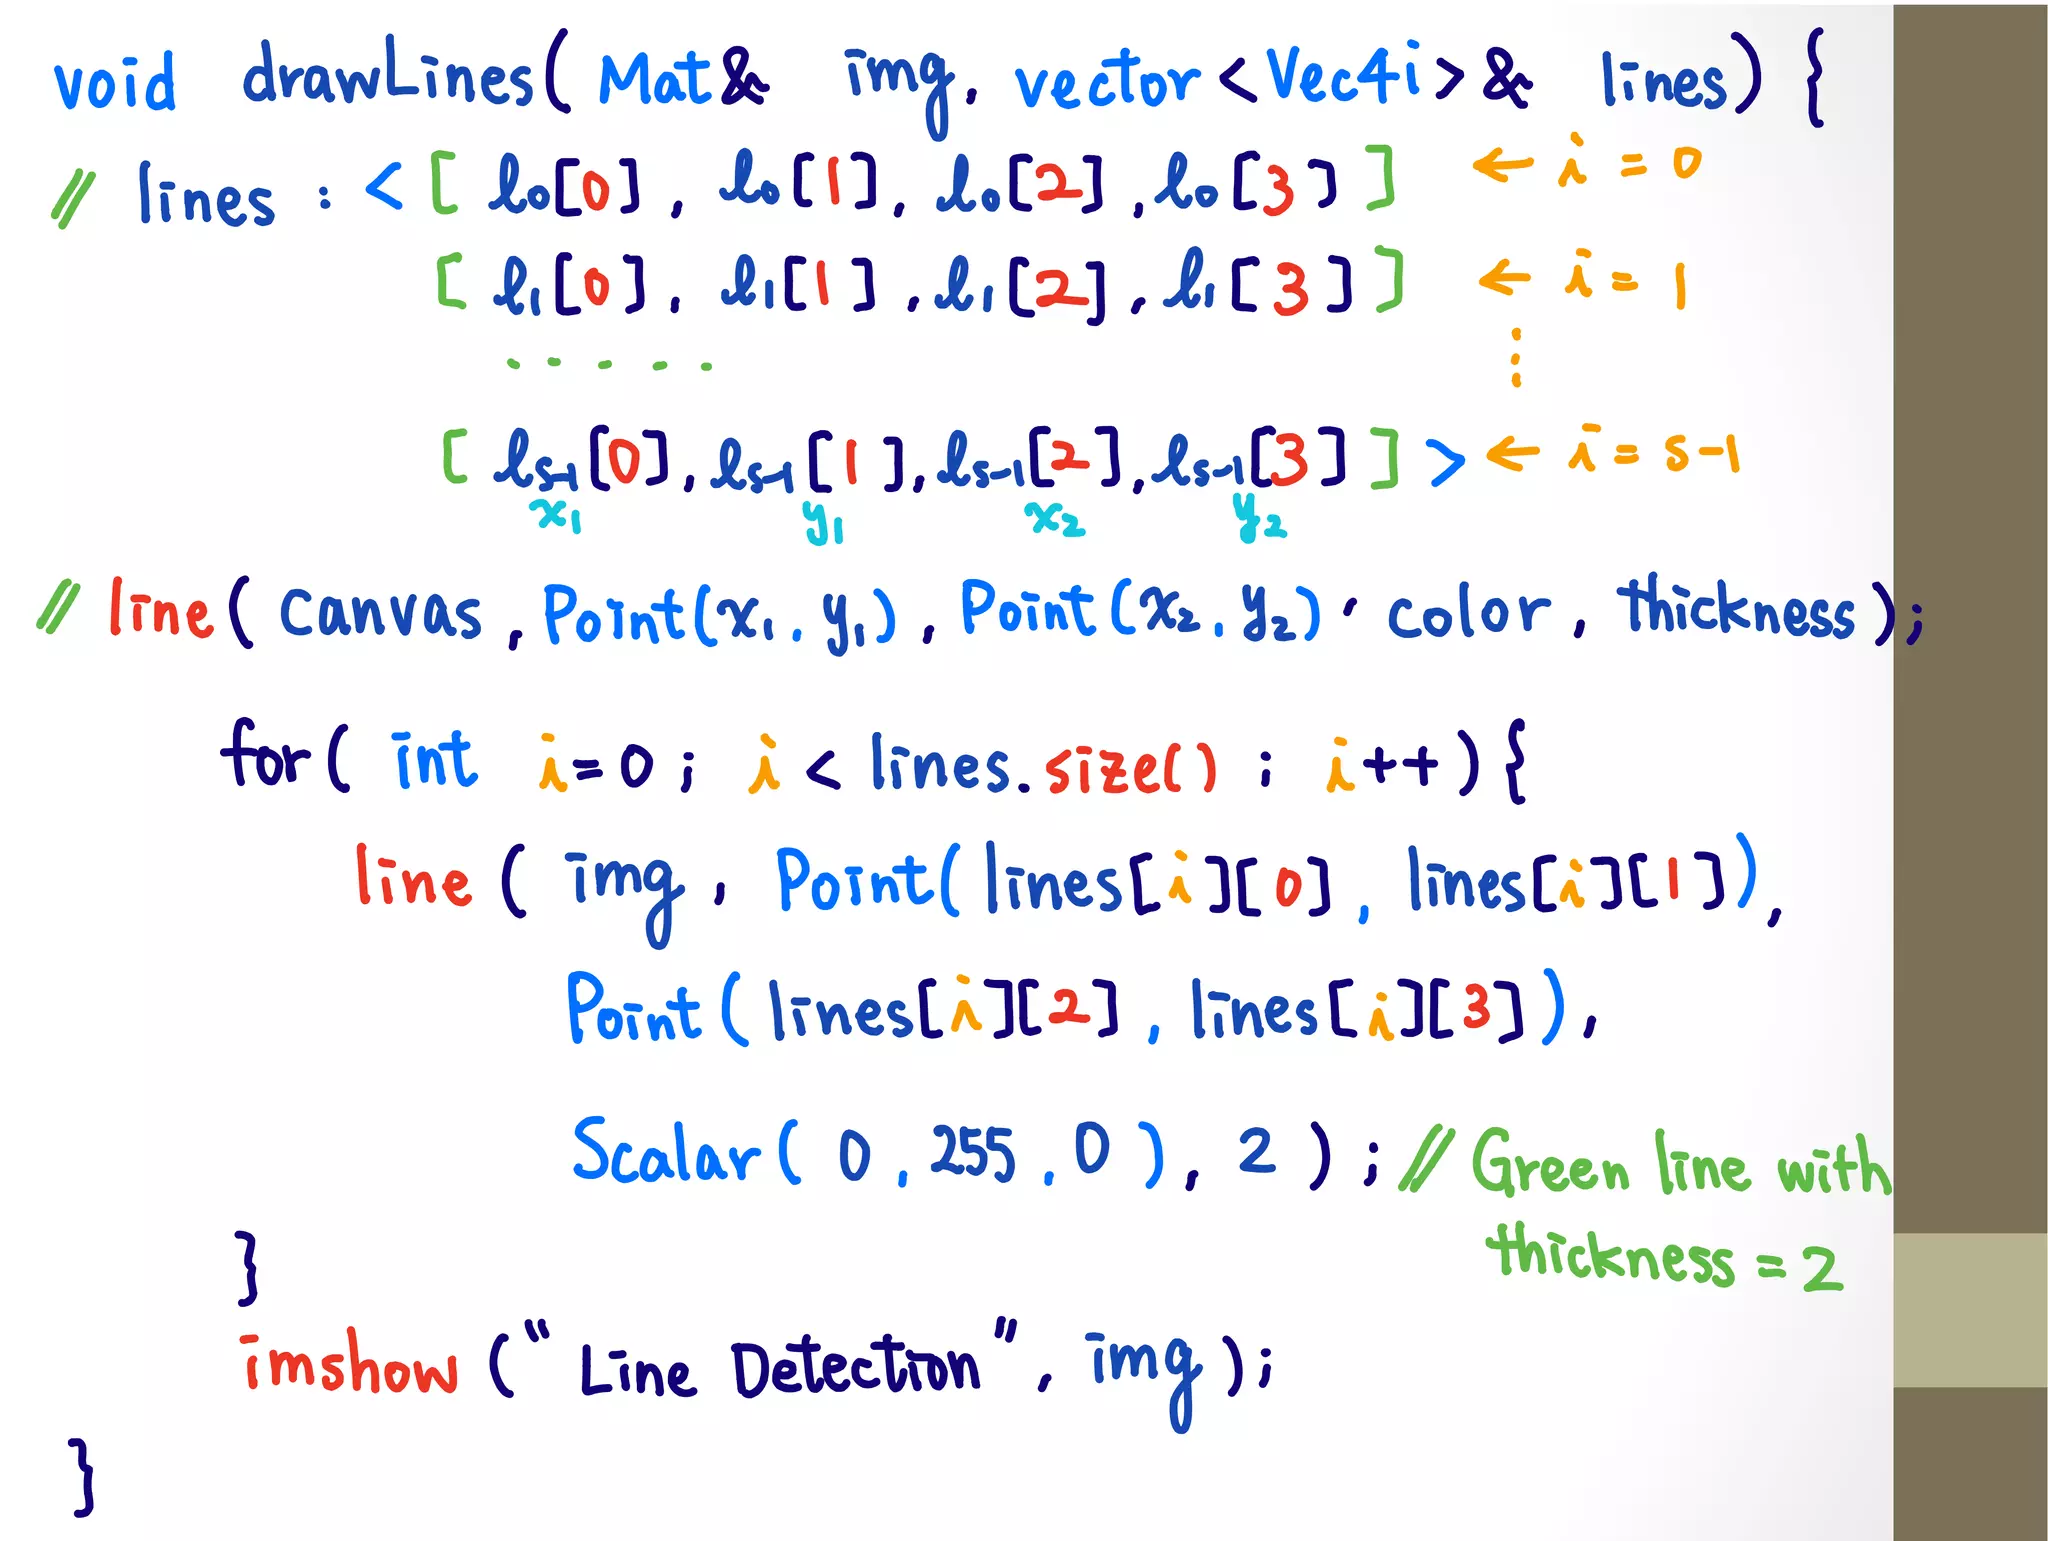 void drawLines( Mat& img, vector<Vec4i>& lines) {
// lines : < [ l0[0], l0[1], l0[2], l0[3] ] ← i = 0
[ l1[0], l1[1], l1[2], l1[3] ] ← i = 1
. . . . . ⋮
[ ls-1[0], ls-1[1], ls-1[2], ls-1[3] ] > ← i = s-1
x1 y1 x2 y2
// line( canvas, Point(x1, y1), Point(x2, y2), color, thickness);
for( int i=0; i < lines.size() ; i++){
line( img, Point( lines[i][0], lines[i][1]),
Point( lines[i][2], lines[i][3]),
Scalar( 0, 255, 0 ), 2 ); // Green line with
thickness = 2
}
imshow ("Line Detection", img);
}